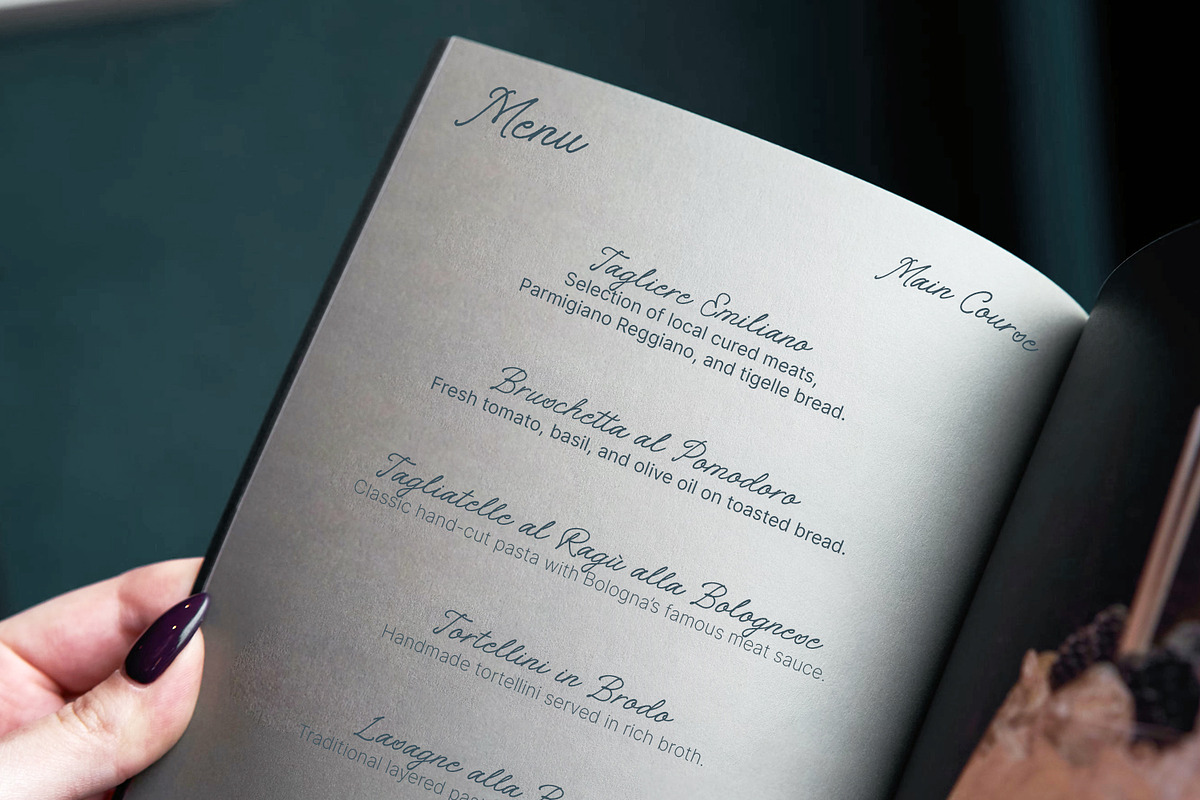 Menu
Main Course
Tagliere Emiliano
Selection of local cured meats,
Parmigiano Reggiano, and tigelle bread.
Bruschetta al Pomodoro
Fresh tomato, basil, and olive oil on toasted bread.
Tagliatelle al Ragù alla Bolognese
Classic hand-cut pasta with Bologna's famous meat sauce.
Tortellini in Brodo
Handmade tortellini served in rich broth.
Lasagne alla
Traditional layered